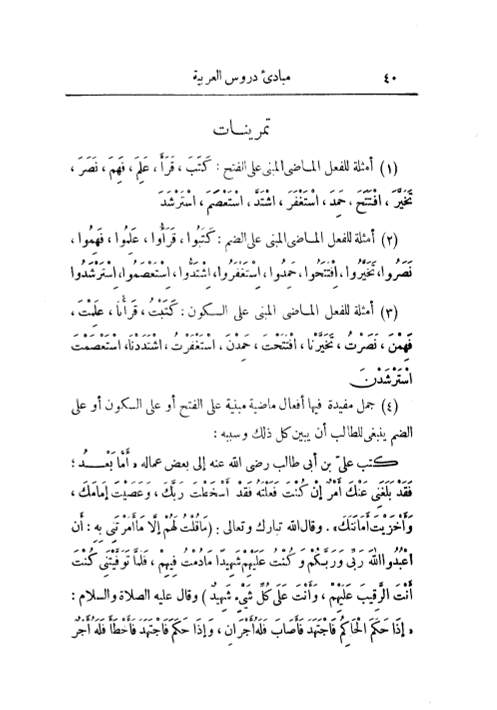 ٤٠ مبادئ دروس العربية
تمرينات
(١) أمثلة للفعل الماضى المبنى على الفتح : كَتَبَ ، قَرَأَ ، عَلِمَ ، فَهِمَ ، نَصَرَ ،
تَخَيَّرَ ، افْتَتَحَ ، حَمِدَ ، اسْتَغْفَرَ ، اشْتَدَّ ، اسْتَعْصَمَ ، اسْتَرْشَدَ
(٢) أمثلة للفعل الماضى المبنى على الضم : كَتَبُوا ، قَرَأُوا ، عَلِمُوا ، فَهِمُوا ،
نَصَرُوا ، تَخَيَّرُوا ، افْتَتَحُوا ، حَمِدُوا ، اسْتَغْفَرُوا ، اشْتَدُّوا ، اسْتَعْصَمُوا ، اسْتَرْشَدُوا
(٣) أمثلة للفعل الماضى المبنى على السكون : كَتَبْتُ ، قَرَأْنَا ، عَلِمْتَ ،
فَهِمْنَ ، نَصَرْتُ ، تَخَيَّرْنَا ، افْتَتَحْتَ ، حَمِدْنَ ، اسْتَغْفَرْتُ ، اشْتَدَدْنَا ، اسْتَعْصَمْتَ
اسْتَرْشَدْنَ
(٤) جمل مفيدة فيها أفعال ماضية مبنية على الفتح أو على السكون أو على
الضم ينبغى للطالب أن يبين كل ذلك وسببه :
كتب علىّ بن أبى طالب رضى الله عنه إلى بعض عماله « أَمَّا بَعْـــدُ ؛
فَقَدْ بَلَغَنِى عَنْكَ أَمْرٌ إِنْ كُنْتَ فَعَلْتَهُ فَقَدْ أَسْخَطْتَ رَبَّكَ ، وَعَصَيْتَ إِمَامَكَ ،
وَأَخْزَيْتَ أَمَانَتَكَ » . وقال الله تبارك وتعالى : (مَا قُلْتُ لَهُمْ إِلَّا مَا أَمَرْتَنِى بِهِ : أَن
اعْبُدُوا اللَّهَ رَبِّى وَرَبَّكُمْ وَكُنْتُ عَلَيْهِمْ شَهِيدًا مَا دُمْتُ فِيهِمْ ، فَلَمَّا تَوَفَّيْتَنِى كُنْتَ
أَنْتَ الرَّقِيبَ عَلَيْهِمْ ، وَأَنْتَ عَلَى كُلِّ شَىْءٍ شَهِيدٌ ) وقال عليه الصلاة والسلام :
« إِذَا حَكَمَ الْحَاكِمُ فَاجْتَهَدَ فَأَصَابَ فَلَهُ أَجْرَانِ ، وَإِذَا حَكَمَ فَاجْتَهَدَ فَأَخْطَأَ فَلَهُ أَجْرٌ